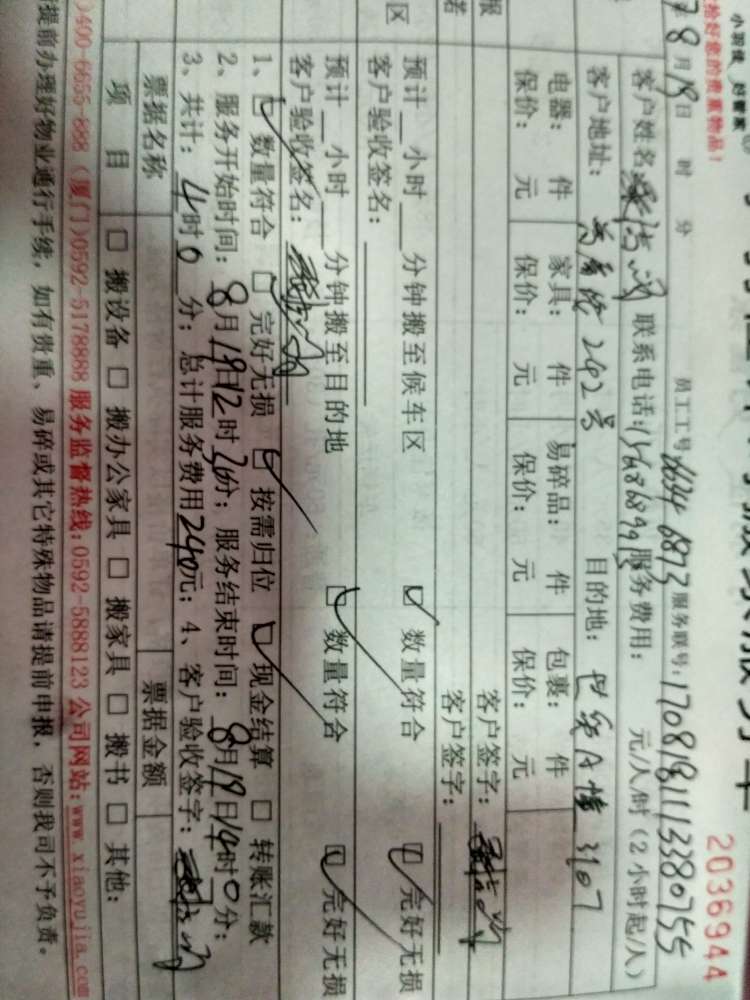 小羽佳 好管家
拾好您的贵重物品！
2036944
7 8月19日 时 分 员工工号: 6634 6873 服务联号: 170818111338075５
客户姓名: 联系电话: 服务费用: 元/人/时（2小时起/人）
客户地址: 242号 目的地: 世纪A幢 3107
电器: 件 家具: 件 易碎品: 件 包裹: 件
保价: 元 保价: 元 保价: 元 保价: 元
客户签字:
客户签字:
预计__小时__分钟搬至候车区 ☑ 数量符合 ☑ 完好无损
客户验收签名:
预计__小时__分钟搬至目的地 ☑ 数量符合 ☑ 完好无损
客户验收签名:
1、☑ 数量符合 ☑ 完好无损 ☑ 按需归位 ☑ 现金结算 □ 转账汇款
2、服务开始时间: 8月19日12时20分; 服务结束时间: 8月19日14时0分;
3、共计: 4时0分; 总计服务费用240元; 4、客户验收签字:
票据名称 票据金额
项目 □ 搬设备 □ 搬办公家具 □ 搬家具 □ 搬书 □ 其他:
)400-6655-888 (厦门)0592-5178888 服务监督热线:0592-5888123 公司网站:www.xiaoyujia.com
提前办理好物业通行手续，如有贵重、易碎或其它特殊物品请提前申报，否则我司不予负责。